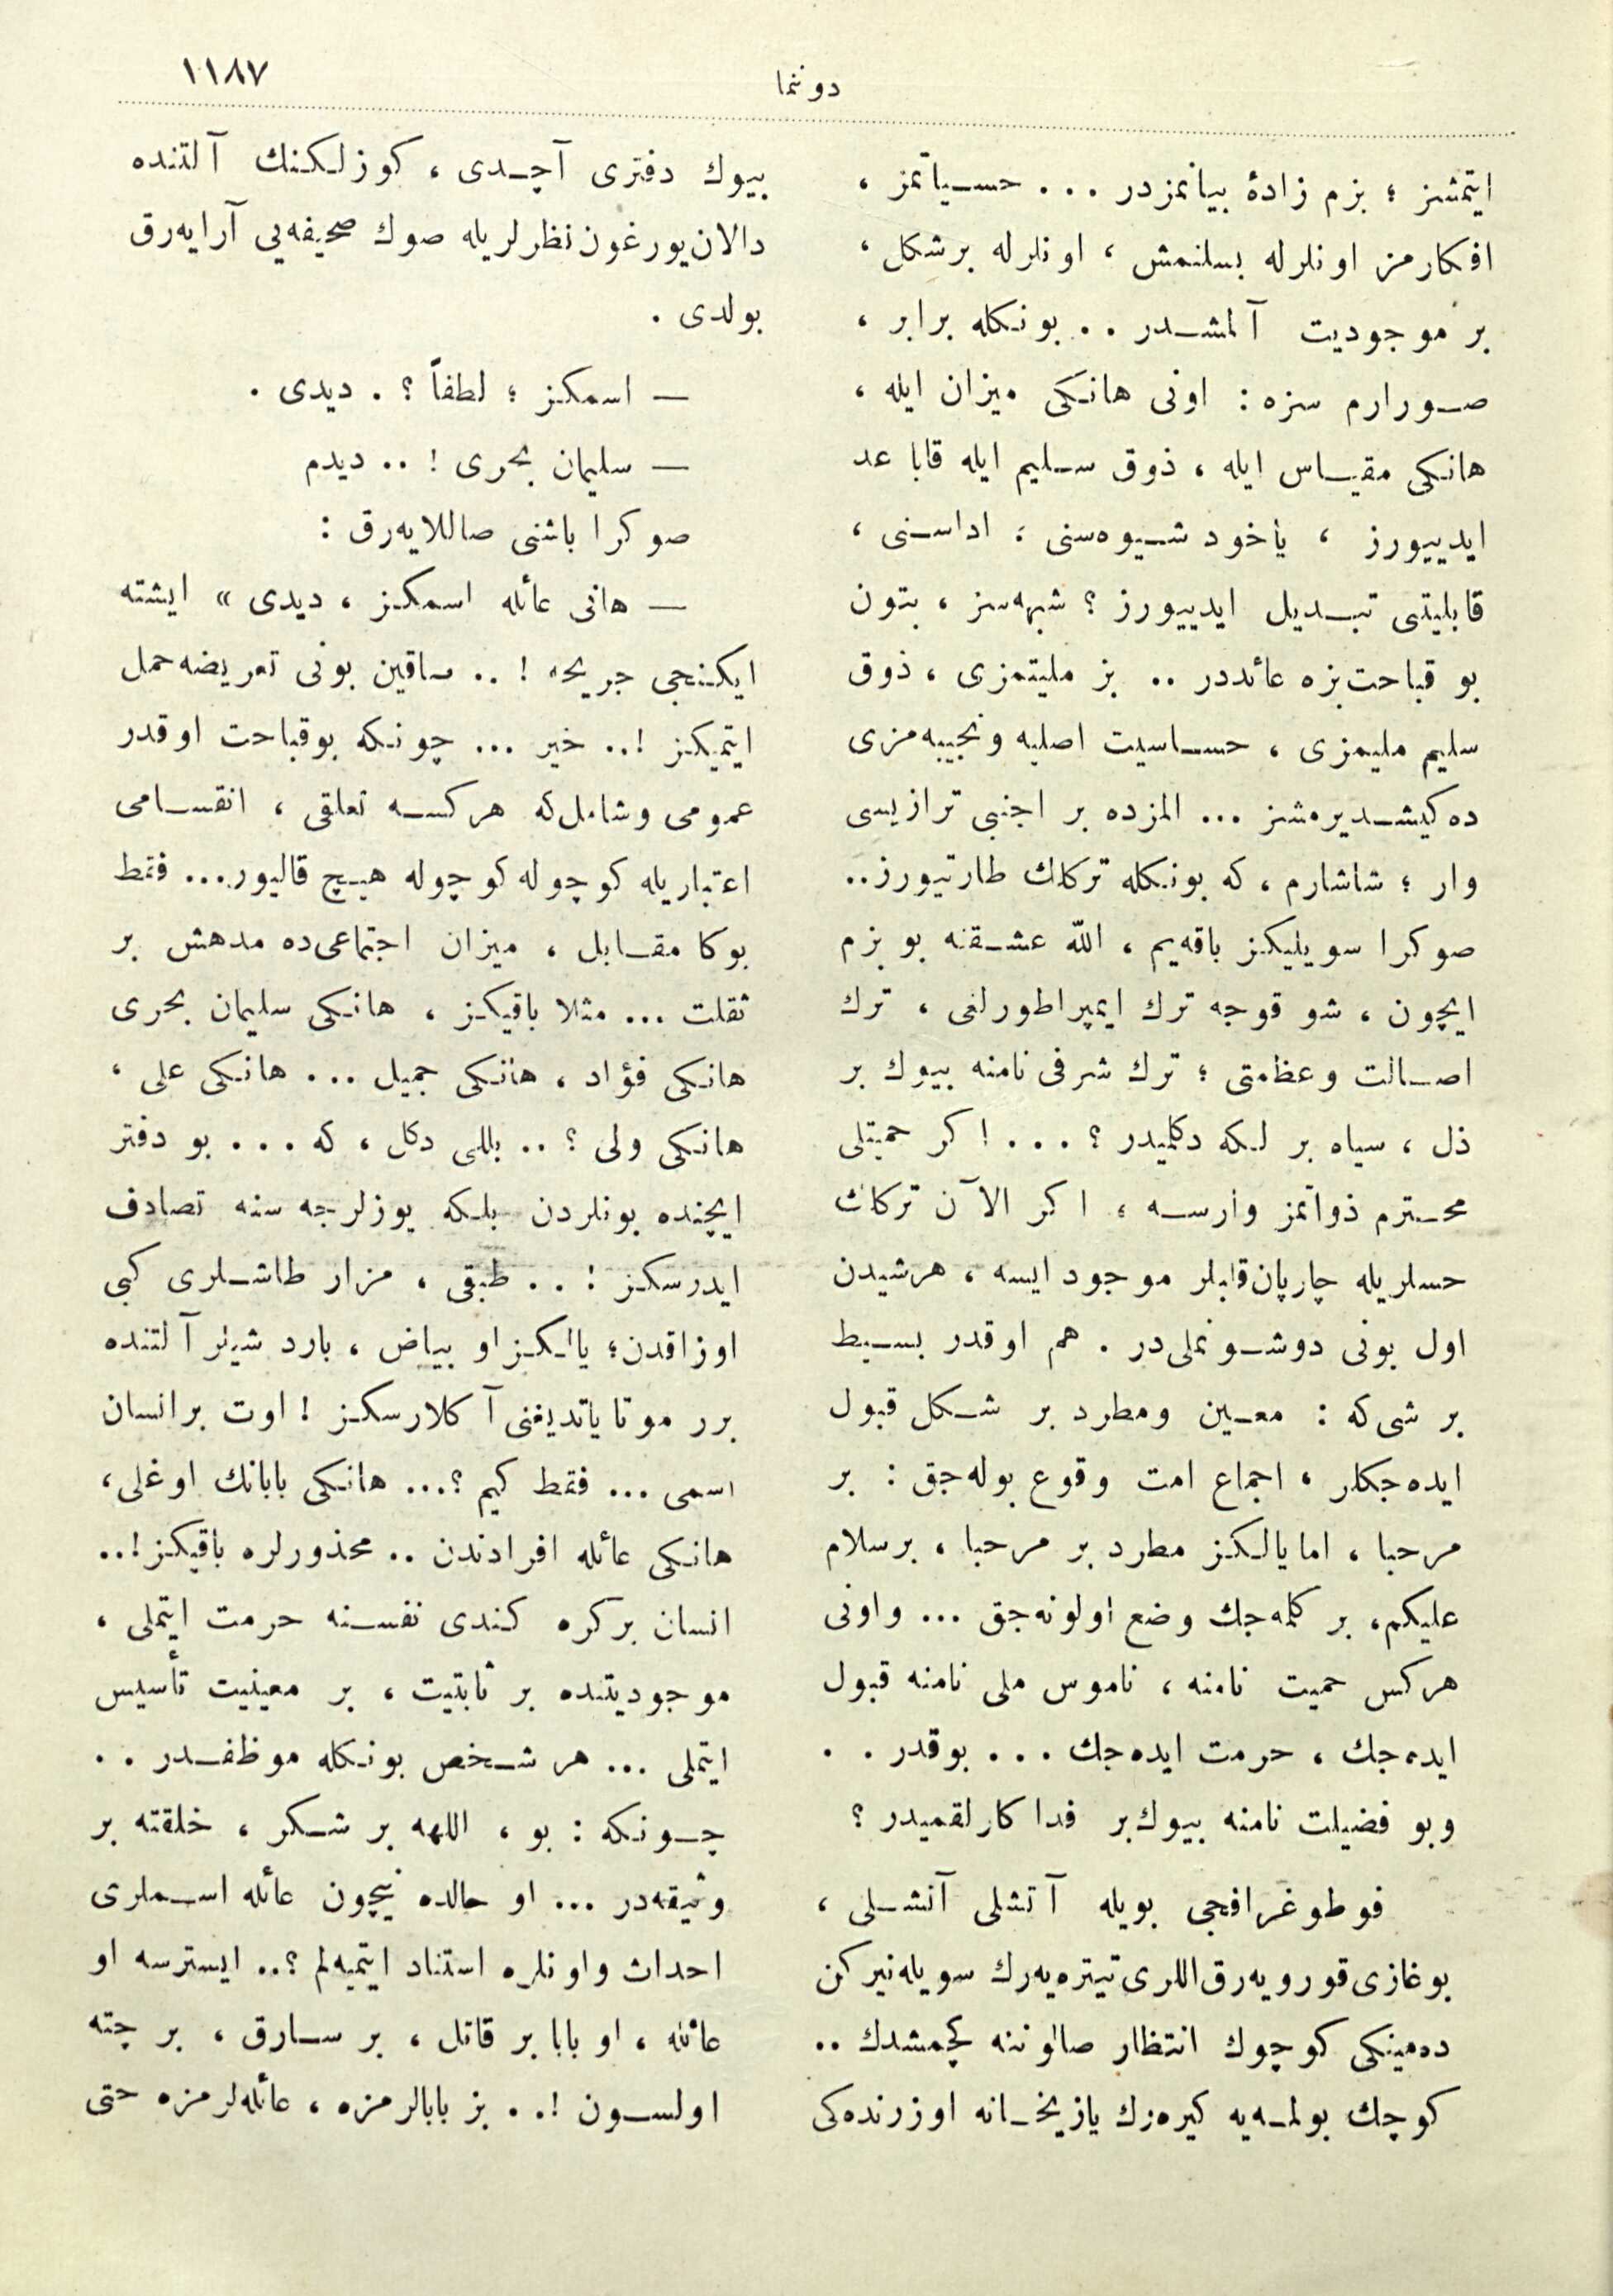 ١١٨٧
دوننما
ایتمشز ؛ بزم زادۀ بیانمزدر ... حسیاتمز ،
افكارمز اونلرله بسلنمش ، اونلرله برشكل ،
بر موجودیت آلمشدر .. بونكله برابر ،
صورارم سزه : اونی هانكی میزان ایله ،
هانكی مقیاس ایله ، ذوق سلیم ایله قابا عد
ایدییورز ، یاخود شیوه‌سنی ؛ اداسنی ،
قابلیتی تبدیل ایدییورز ؟ شبهه‌سز ، بتون
بو قباحت بزه عائددر .. بز ملیتمزی ، ذوق
سلیم ملیمزی ، حساسیت اصلیه ونجیبه‌مزی
ده كیشدیرمشز ... المزده بر اجنبی ترازیسی
وار ؛ شاشارم ، كه بونكله تركلك طارتیورز..
صوكرا سویلیكز باقه‌یم ، الله عشقنه بو بزم
ایچون ، شو قوجه ترك ایمپراطورلغی ، ترك
اصالت وعظمتی ؛ ترك شرفی نامنه بیوك بر
ذل ، سیاه بر لكه دكلمیدر ؟ ... ! كر حمیتلی
محترم ذواتمز وارسه ؛ اكر الآن تركلك
حسلریله چارپان قلبلر موجود ایسه ، هرشیدن
اول بونی دوشونملی‌در . هم اوقدر بسیط
بر شی‌كه : معین ومطرد بر شكل قبول
ایده‌جكلر ، اجماع امت وقوع بوله‌جق : بر
مرحبا ، اما یالكز مطرد بر مرحبا ، برسلام
علیكم، بر كلمه‌جك وضع اولونه‌جق ... واونی
هركس حمیت نامنه ، ناموس ملی نامنه قبول
ایده‌جك ، حرمت ایده‌جك ... بوقدر . .
وبو فضیلت نامنه بیوك بر فداكارلقمیدر ؟
فوطوغرافجی بویله آتشلی آتشلی ،
بوغازی قورویه‌رق اللری تیتره‌یه‌رك سویله‌نیركن
ده‌مینكی كوچوك انتظار صالوننه كچمشدك ..
كوچك بولمه‌یه كیره‌رك یازیخانه اوزرنده‌كی
بیوك دفتری آچدی ، كوزلكنك آلتنده
دالان یورغون نظرلریله صوك صحیفه‌یی آرایه‌رق
بولدی .
— اسمكز ؛ لطفاً ؟ . دیدی .
— سلیمان بحری ! .. دیدم
صوكرا باشنی صاللایه‌رق :
— هانی عائله اسمكز ، دیدی » ایشته
ایكنجی جریحه ! .. ساقین بونی تعریضه حمل
ایتمیكز !.. خیر ... چونكه بوقباحت اوقدر
عمومی وشامل‌كه هركسه تعلقی ، انقسامی
اعتباریله كوچوله كوچوله هیچ قالیور... فقط
بوكا مقابل ، میزان اجتماعی‌ده مدهش بر
ثقلت ... مثلا باقیكز ، هانكی سلیمان بحری
هانكی فؤاد ، هانكی جمیل ... هانكی علی ،
هانكی ولی ؟ .. بللی دكل ، كه ... بو دفتر
ایچنده بونلردن بلكه یوزلرجه سنه تصادف
ایدرسكز ! .. طبقی ، مزار طاشلری كبی
اوزاقدن؛ یالكز او بیاض ، بارد شیلر آلتنده
برر موتا یاتدیغنی آكلارسكز ! اوت برانسان
اسمی ... فقط كیم ؟... هانكی بابانك اوغلی،
هانكی عائله افرادندن .. محذورلره باقیكز !..
انسان بركره كندی نفسنه حرمت ایتملی ،
موجودیتنده بر ثابتیت ، بر معینیت تأسیس
ایتملی ... هر شخص بونكله موظفدر . .
چونكه : بو ، اللهه بر شكر ، خلقته بر
وثیقه‌در ... او حالده نیچون عائله اسملری
احداث واونلره استناد ایتمیه‌لم ؟.. ایسترسه او
عائله ، او بابا بر قاتل ، بر سارق ، بر چته
اولسون !.. بز بابالرمزه ، عائله‌لرمزه حتی